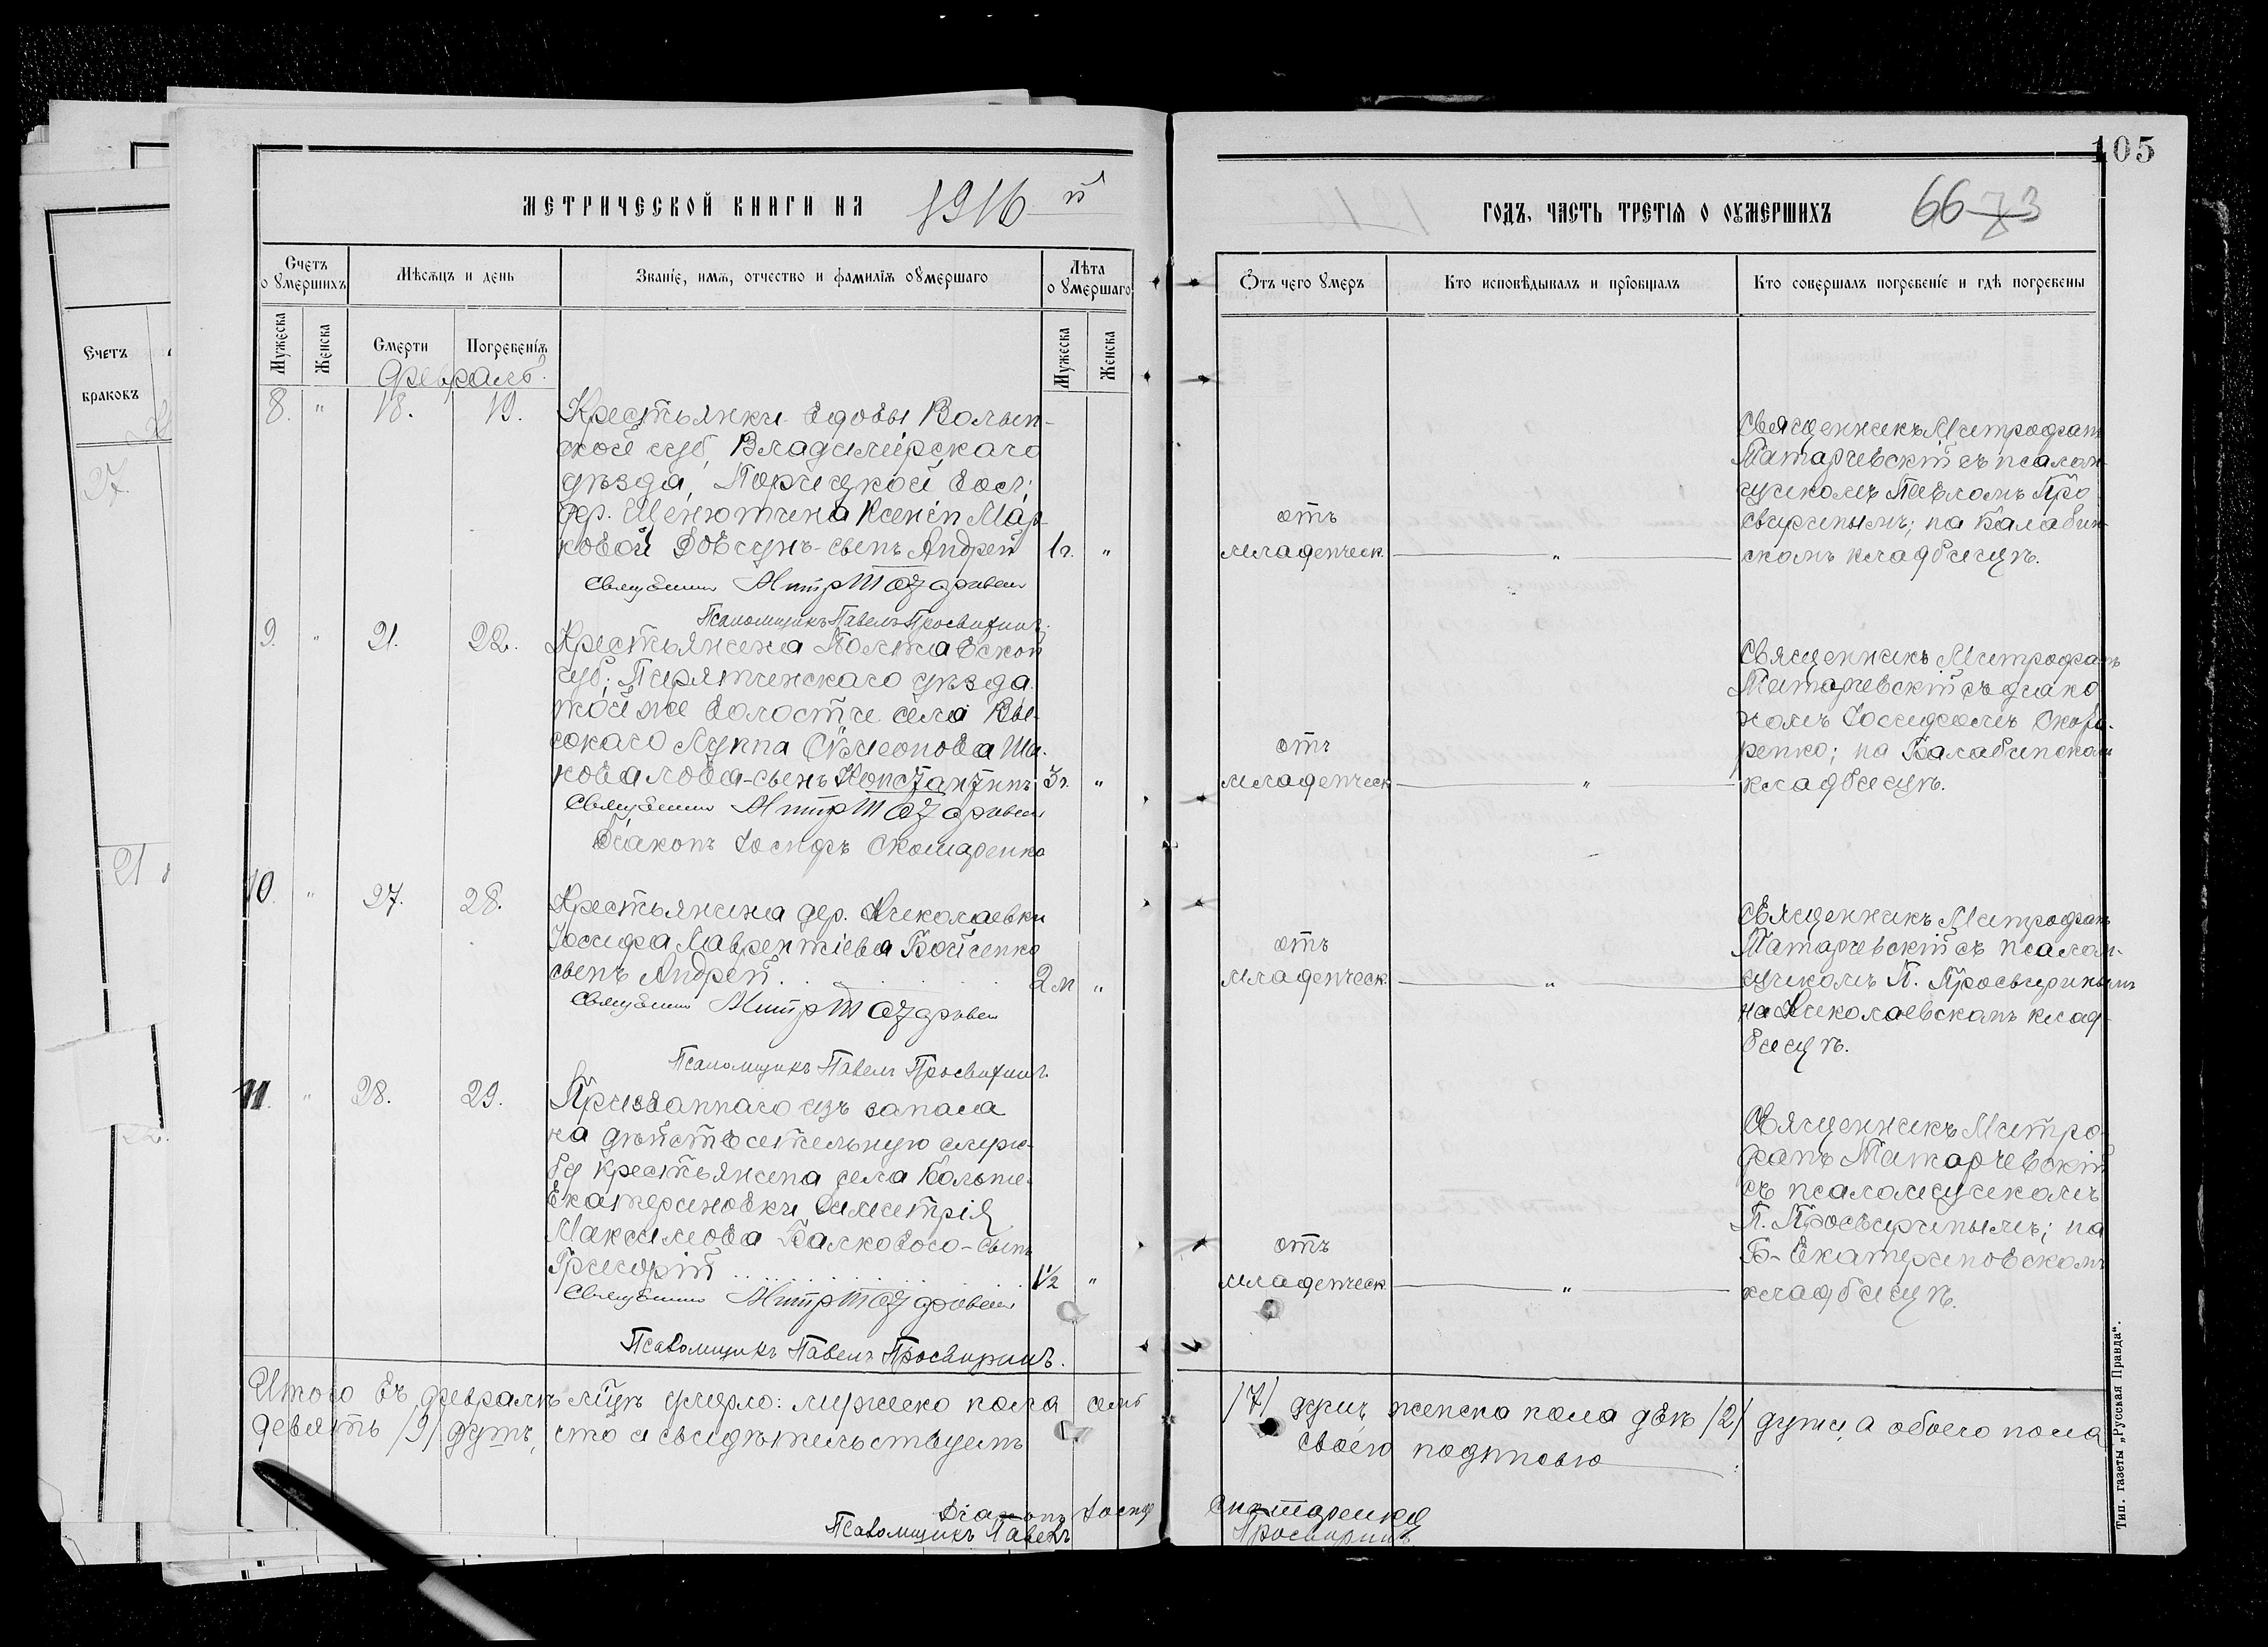 105
МЕТРИЧЕСКОЙ КНИГИ НА 1916 й
ГОДЪ, ЧАСТЬ ТРЕТІЯ О ОУМЕРШИХЪ
66 73
Счетъ о умершихъ
Мѣсяцъ и день
Званіе, имя, отчество и фамилія оумершаго
Лѣта оумершаго
Отъ чего умеръ
Кто исповѣдывалъ и пріобщалъ
Кто совершалъ погребеніе и гдѣ погребены
Мужеска
Женска
Смерти
Погребенія
Мужеска
Женска
Февраль.
8. " 18. 19.
Крестьянки вдовы Волын-
ской губ, Владимірскаго
уѣзда, Порицкой вол;
дер. Щенютина Ксеніи Мар-
ковой Довгунъ-сынъ Андрей 1 г. "
Священникъ Митр Татарчевскій
Псаломщикъ Павелъ Просвиринъ.
отъ
младенческ. "
Священникъ Митрофанъ
Татарчевскій съ псалом-
щикомъ Павломъ Про-
свиринымъ; на Балабин-
скомъ кладбищѣ.
9. " 21. 22.
Крестьянина Полтавской
губ; Пирятинскаго уѣзда
той же волости села Вы-
сокаго Луппа Сѵмеонова Ша-
ковалова-сынъ Константинъ 3 г. "
Священникъ Митр Татарчевскій
Діаконъ Іосифъ Скомаренко
отъ
младенческ. "
Священникъ Митрофанъ
Татарчевскій съ діако-
номъ Іосифомъ Скома-
ренко; на Балабинскомъ
кладбищѣ.
10. " 27. 28.
Крестьянина дер. Николаевки
Іосифа Лаврентіева Бойченко
сынъ Андрей 2 м "
Священникъ Митр Татарчевскій
Псаломщикъ Павелъ Просвиринъ.
отъ
младенческ. "
Священникъ Митрофанъ
Татарчевскій съ псалом-
щикомъ П. Просвиринымъ
на Николаевскомъ клад-
бищѣ.
11. " 28. 29.
Призваннаго изъ запаса
на дѣйствительную служ-
бу крестьянина села Больше-
Екатериновки Димитрія
Максимова Балковаго-сынъ
Григорій 1 1/2 "
Священникъ Митр Татарчевскій
Псаломщикъ Павелъ Просвиринъ.
отъ
младенческ. "
Священникъ Митро-
фанъ Татарчевскій
съ псаломщикомъ
П. Просвиринымъ; на
Б-Екатериновскомъ
кладбищѣ.
Итого въ февралѣ мцѣ умерло: мужеско пола семь /7/ душъ, женско пола двѣ /2/ души, а обоего пола
девять /9/ душъ, что и свидѣтельствуемъ своею подписью
Діаконъ Іосифъ Скомаренко
Псаломщикъ Павелъ Просвиринъ
Тип. газеты „Русская Правда“.
Счетъ
браковъ
27.
21